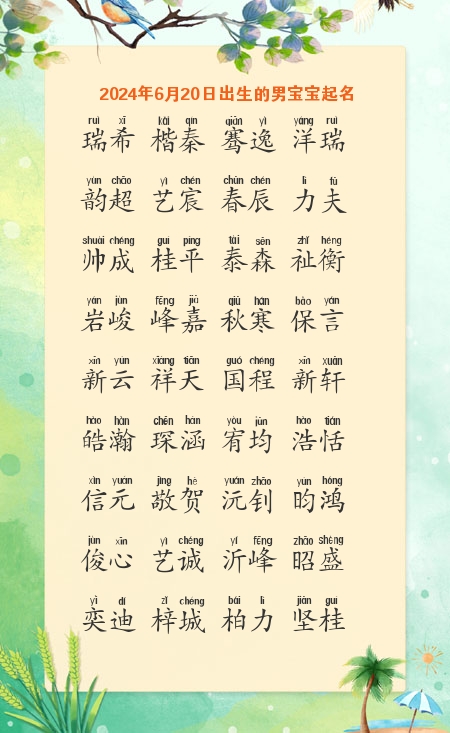 2024年6月20日出生的男宝宝起名
ruì xī kǎi qín qiān yì yáng ruì
瑞希 楷秦 骞逸 洋瑞
yùn chāo yì chén chūn chén lì fū
韵超 艺宸 春辰 力夫
shuài chéng guì píng tài sēn zhǐ héng
帅成 桂平 泰森 祉衡
yán jùn fēng jiā qiū hán bǎo yán
岩峻 峰嘉 秋寒 保言
xīn yún xiáng tiān guó chéng xīn xuān
新云 祥天 国程 新轩
hào hàn chēn hán yòu jūn hào tián
皓瀚 琛涵 宥均 浩恬
xìn yuán jìng hè yuán zhāo yún hóng
信元 敬贺 沅钊 昀鸿
jùn xīn yì chéng yí fēng zhāo shèng
俊心 艺诚 沂峰 昭盛
yì dí zǐ chéng bǎi lì jiān guì
奕迪 梓城 柏力 坚桂